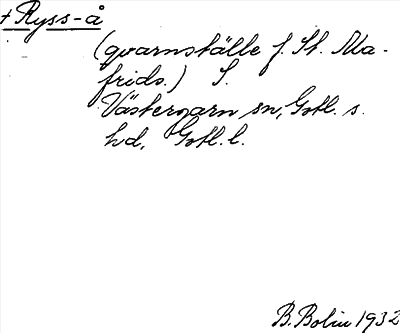 † Ryss-å
(qvarnställe f. St. Ma-
frids.) S.
Västergarn sn, Gotl. s.
hd, Gotl. l.
B. Bolin 1932